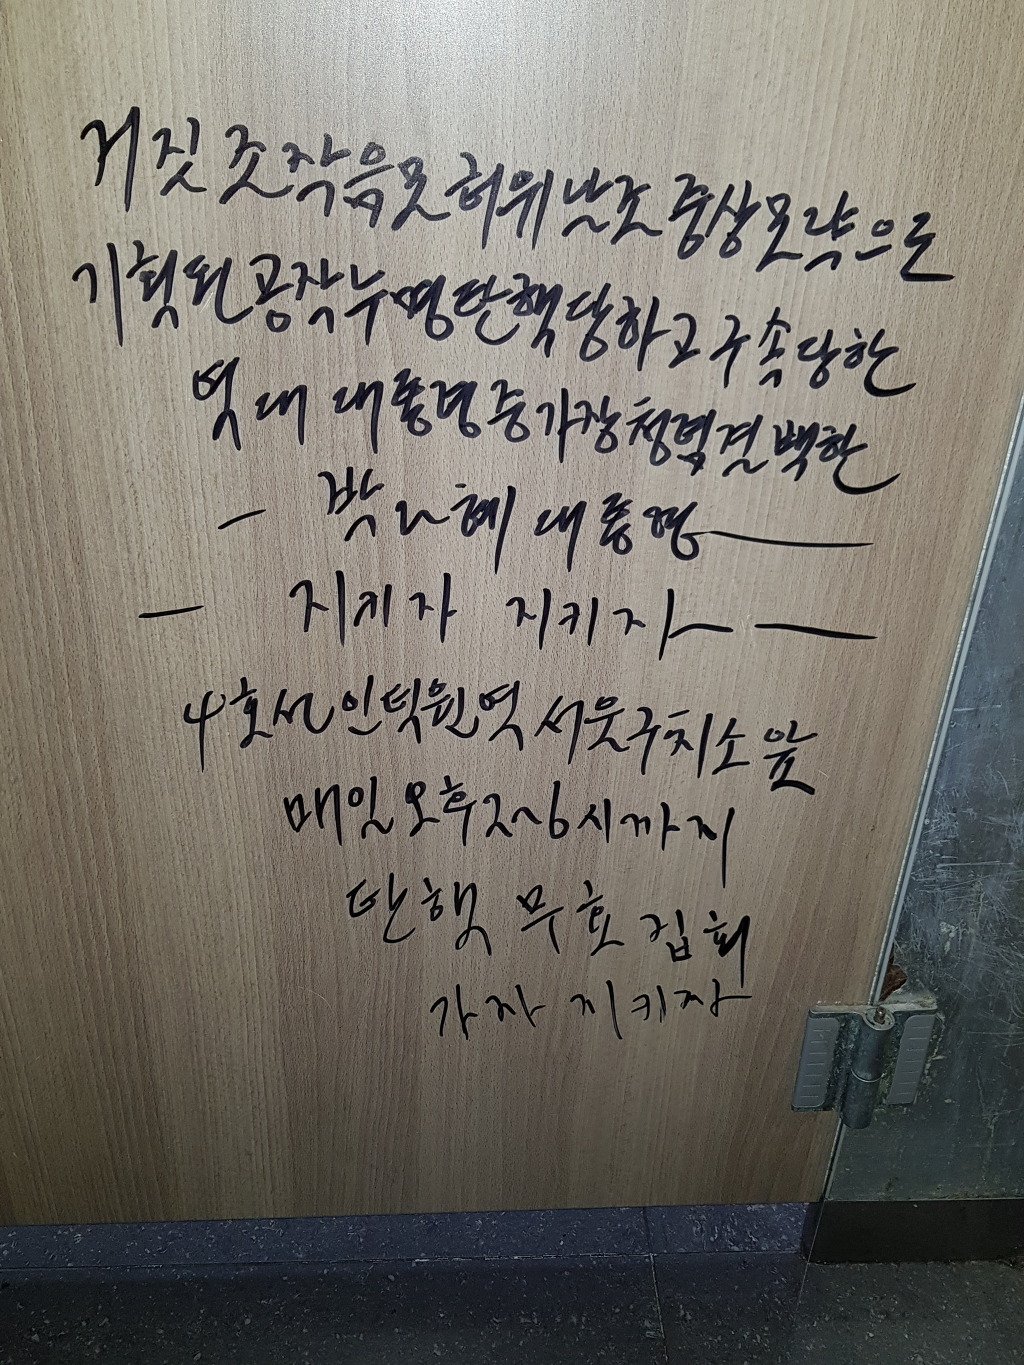 거짓 조작 음모 허위 날조 중상모략으로
기획된 공작 누명 탄핵 당하고 구속 당한
역대 대통령 중 가장 청렴결백한
- 박근혜 대통령 -
- 지키자 지키자 -
4호선 인덕원역 서울구치소 앞
매일 오후 2~6시까지
탄핵 무효 집회
가자 지키자